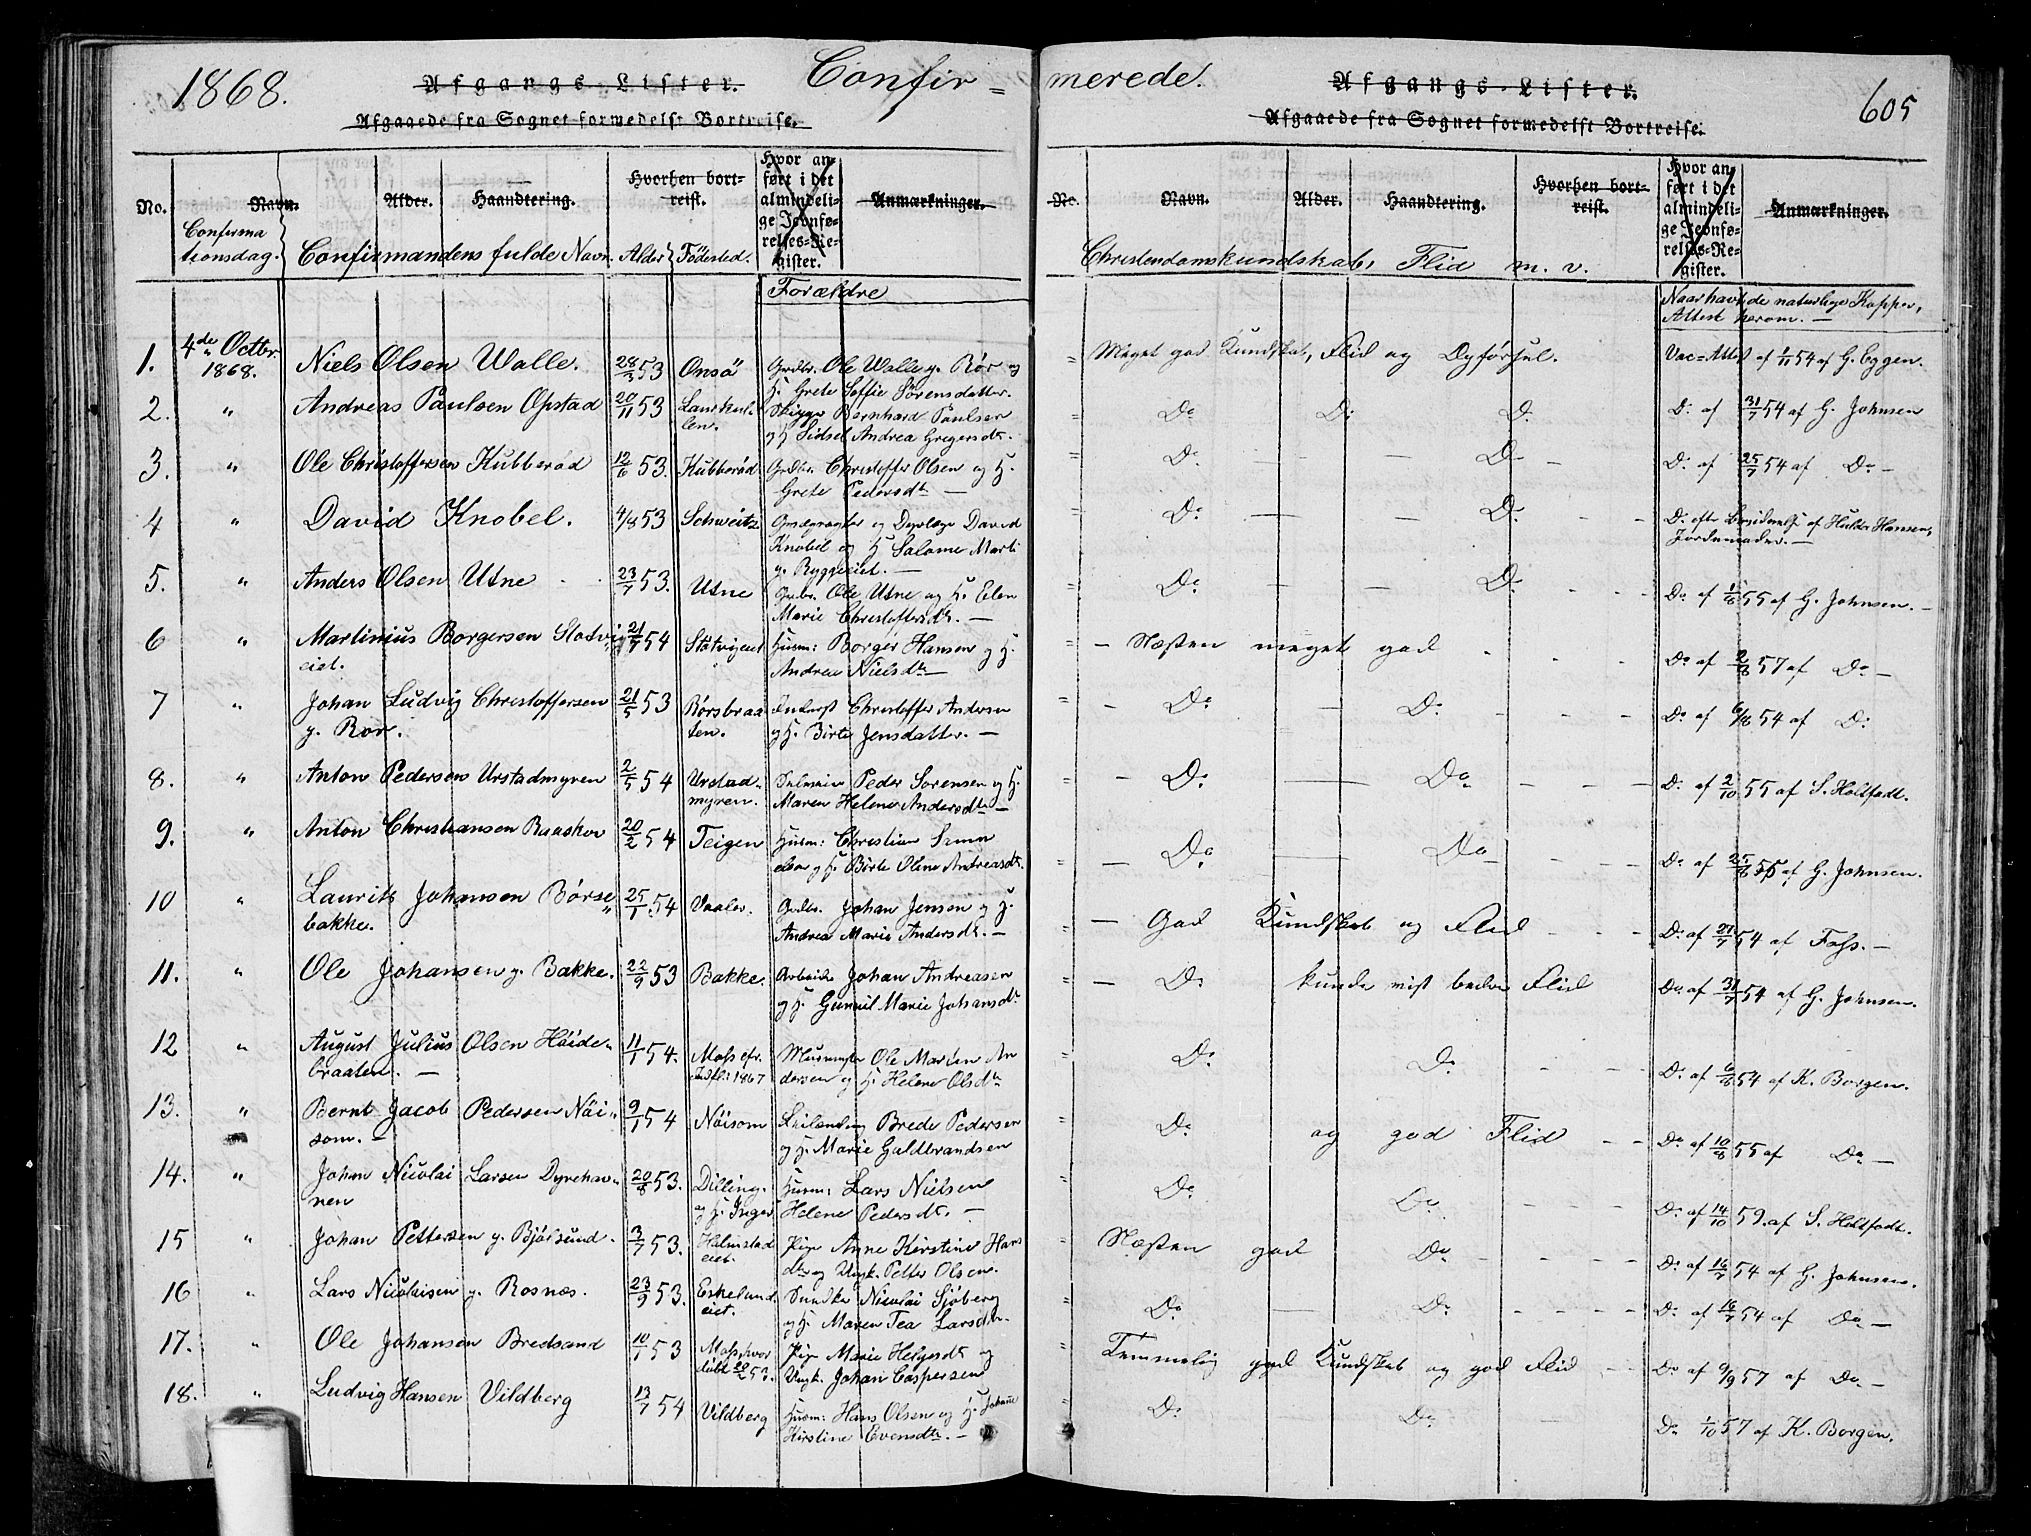 1868.
Afgangs-Lister.
Afgaaede fra Sognet formedelst Bortreise.
Confir=
merede.
Afgangs-Lister.
Afgaaede fra Sognet formedelst Bortreise.
605
No. Navn. Alder. Haandtering. Hvorhen bortreist. Hvor anført i det almindelige Jevnførelses-Register. Anmærkninger.
Confirmationsdag. Confirmandens fulde Navn Alder Födested.
Forældre
No. Navn. Alder. Haandtering. Hvorhen bortreist. Hvor anført i det almindelige Jevnførelses-Register. Anmærkninger.
Christendomskundskab, Flid m. v.
Naar havt de naturlige Kopper,
Attest herom. —
1. 4de Octbr. 1868. Niels Olsen Walle. 28/3 53 Onsö Grdbr. Ole Walle g. Rör og
H. Grete Soffie Sörensdatter.
Meget god Kundskab, Flid og Opförsel. Vac=Attest af 1/11 54 af G. Eggen.
2. " Andreas Paulsen Opstad 20/11 53 Laurkullen. Bernhard Paulsen
og H. Sidsel Andrea Gregersdt.
Do D: D. D: af 31/7 54 af G. Johnsen
3. " Ole Christoffersen Kubberöd 12/6 53. Kubberöd Grdbr. Christoffer Olsen og H.
Grete Pedersdt. —
D: D: D: af 25/7 54 af Do —
4 " David Knobel. 4/8 53 Schweitz og David
Knobel og H. Salome Marti
g. Ryggeeiet. —
Do D: D: efter af Hulda Hansen,
Jordemoder. —
5. " Anders Olsen Utne 23/7 53. Utne Grdbr. Ole Utne og H. Elen
Marie Christoffersdt. —
Do D: Do af 1/8 55 af G. Johnsen. —
6 " Martinius Borgersen Slotvig
eiet. 21/5 54 Slotvigeiet Husm: Borger Hansen og H.
Andrea Nielsdt —
— Næsten meget god Do af 2/8 57 af Do —
7 " Johan Ludvig Christoffersen
g. Rör. 21/5 53 Rörsbraaten. Inderst Christoffer Andersen
og H. Birte Jensdatter. —
— Do D: Do af 6/8 54 af D:
8. " Anton Pedersen Urstadmyren 2/5 54 Urstadmyren. Peder Sorensen og H.
Maren Helene Andersdt —
— D: Do D: af 2/10 55 af S. Holtfodt.
9. " Anton Christiansen Raaskov 20/2 54 Teigen Husm: Christian
og H. Börte Oline Andreasdt.
— Do Do Do af 25/8 55 af G. Johnsen.
10 " Laurits Johansen Börse
bakke. 25/1 54 Vaaler. Grdbr. Johan Jensen og H.
Andrea Marie Andersdt. —
— God Kundskab og Flid D: af 27/7 54 af Foss. —
11. " Ole Johansen g. Bakke. 22/9 53 Bakke. Arbeider Johan Andreasen
og H. Gunnil Marie Johansdt
— D: kunde vist bedre Flid Do af 31/7 54 af G. Johnsen.
12 " August Julius Olsen Höide-
braaten. — 11/1 54. Moss cfr.
1867 Ole Martin An
dersen og H. Helene Olsdt
Do D: Do af 6/8 54 af K. Borgen.
13. " Bernt Jacob Pedersen Nöi-
som. — 9/1 54 Nöisom Brede Pedersen
og H. Marie Guldbrandsen
D: og god Flid Do af 10/8 55 af Do —
14. " Johan Nicolai Larsen Dyrehav-
nen 20/8 53. Dilling. Husm: Lars Nielsen
og H. Inger Helene Pedersdt. —
Do Do D: af 14/10 59. af S. Holtfodt.
15 " Johan Pettersen g. Björsund. 3/7 53. Halmstad
eiet. Pige Anne Kirstine Hans
dt. og Ungk. Petter Olsen.
Næsten god Do Do af 16/7 54 af G. Johnsen.
16 " Lars Nicolaisen g. Rosnæs. 23/9 53. Eskelund
eiet. Nicolai Sjöberg
og H. Maren Tea Larsdtr.
D: D: D: af 16/7 54 af Do —
17. " Ole Johansen Bredsand 10/1 53 Moss, hvor
döbt 20/2 53. Pige Marie Helgesdt og
Ungk. Johan Caspersen
Temmelig god Kundskab og god Flid Do af 6/9 57 af Do —
18. " Ludvig Hansen Vildberg 13/7 54 Vildberg Husm: Hans Olsen og H. Johanne
Kirstine Evensdtr. —
D: Do Do 1/10 57 af K. Borgen.